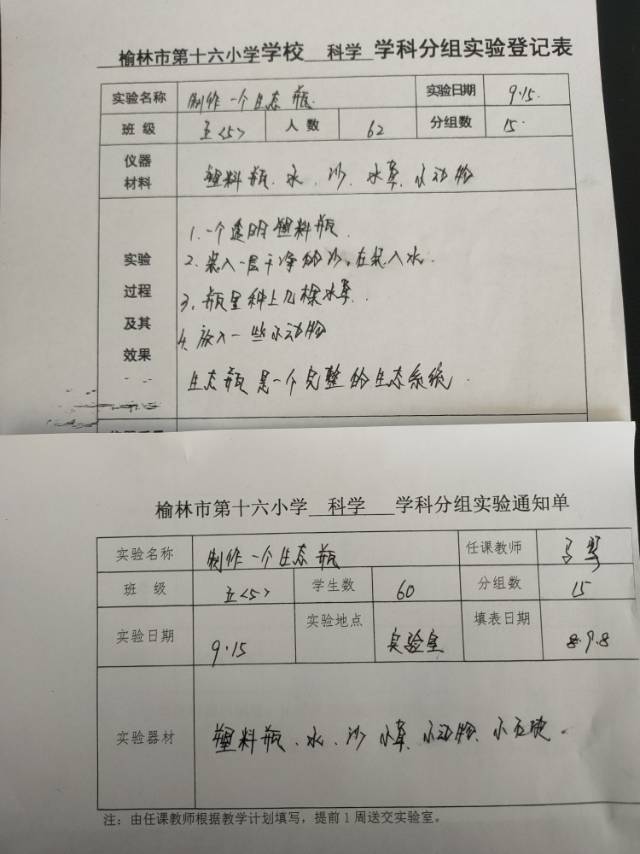 榆林市第十六小学学校 科学 学科分组实验登记表
实验名称 制作一个生态瓶 实验日期 9.15.
班级 五<5> 人数 62 分组数 15.
仪器
材料 塑料瓶、水、沙、水草、小动物
实验
过程
及其
效果
1.一个透明塑料瓶.
2.装入一层干净的沙,在装入水.
3.瓶里种上几棵水草.
4.放入一些小动物
生态瓶是一个完整的生态系统.
榆林市第十六小学 科学 学科分组实验通知单
实验名称 制作一个生态瓶 任课教师
班级 五<5> 学生数 60 分组数 15
实验日期 9.15 实验地点 实验室 填表日期 8.9.8
实验器材 塑料瓶、水、沙 水草、小动物、小石块。
注:由任课教师根据教学计划填写,提前1周送交实验室。